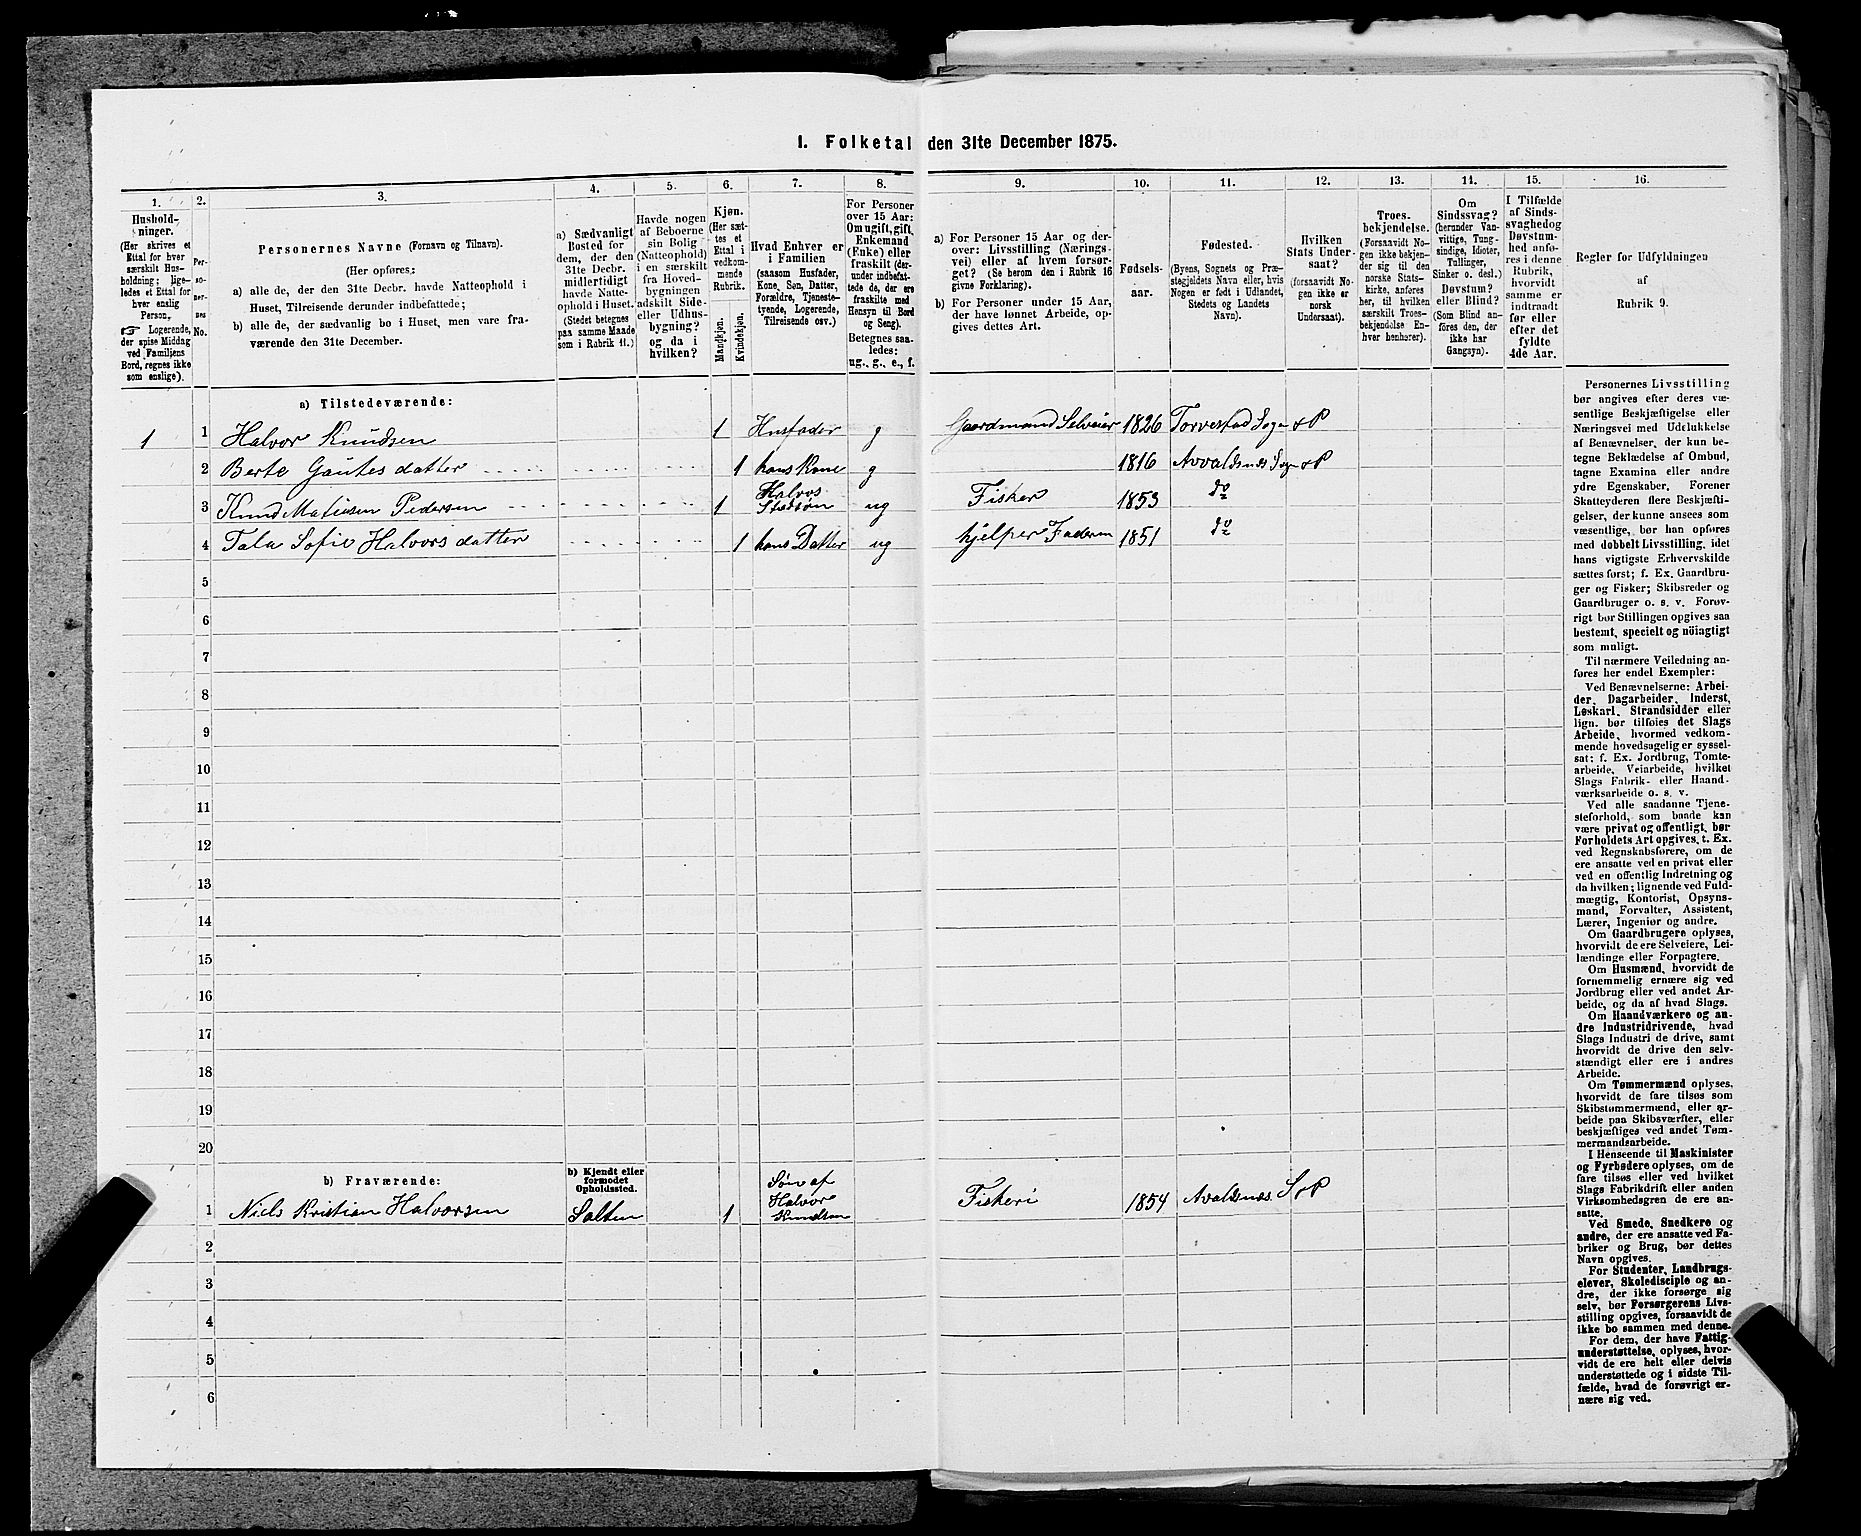 1. Folketal den 31te December 1875.
1. 2. 3. 4. 5. 6. 7. 8. 9. 10. 11. 12. 13. 14. 15. 16.
Hushold-
ninger.
(Her skrives et
Ettal for hver
særskilt Hus-
holdning; lige-
ledes et Ettal for
hver enslig
Person.
☞ Logerende,
der spise Middag
ved Familiens
Bord, regnes ikke
som enslige).
Per-
so-
ner-
nes
No.
Personernes Navne (Fornavn og Tilnavn).
(Her opføres:
a) alle de, der den 31te Decbr. havde Natteophold i
Huset, Tilreisende derunder indbefattede;
b) alle de, der sædvanlig bo i Huset, men vare fra-
værende den 31te December.
a) Sædvanligt
Bosted for
dem, der den
31te Decbr.
midlertidigt
havde Natte-
ophold i Huset.
(Stedet betegnes
paa samme Maade
som i Rubrik 11.)
Havde nogen
af Beboerne
sin Bolig
(Natteophold)
i en særskilt
fra Hoved-
bygningen
adskilt Side-
eller Udhus-
bygning?
og da i
hvilken?
Kjøn.
(Her sæt-
tes et
Ettal i
vedkom-
mende
Rubrik.
Mandkjøn.
Kvindekjøn.
Hvad Enhver er
i Familien
(saasom Husfader,
Kone, Søn, Datter,
Forældre, Tjeneste-
tyende, Logerende,
Tilreisende osv.)
For Personer
over 15 Aar:
Om ugift, gift,
Enkemand
(Enke) eller
fraskilt (der-
under indbefat-
tede de, der ere
fraskilte med
Hensyn til Bord
og Seng).
Betegnes saa-
ledes:
ug., g., e., f.
a) For Personer 15 Aar og der-
over: Livsstilling (Nærings-
vei) eller af hvem forsør-
get? (Se herom den i Rubrik 16
givne Forklaring).
b) For Personer under 15 Aar,
der have lønnet Arbeide, op-
gives dettes Art.
Fødsels-
aar.
Fødested.
(Byens, Sognets og Præ-
stegjeldets Navn eller, hvis
Nogen er født i Udlandet,
Stedets og Landets
Navn).
Hvilken
Stats Under-
saat?
(forsaavidt No-
gen ikke er
norsk
Undersaat).
Troes-
bekjendelse.
(Forsaavidt No-
gen ikke bekjen-
der sig til den
norske Stats-
kirke, anføres
her, til hvilken
særskilt Troes-
bekjendelse En-
hver henhører).
Om
Sindssvag?
(herunder Van-
vittige, Tung-
sindige, Idioter,
Tullinger,
Sinker o. desl.)
Døvstum?
eller Blind?
(Som Blind an-
føres den, der
ikke har
Gangsyn).
I Tilfælde
af Sinds-
svaghed og
Døvstum-
hed anfø-
res i denne
Rubrik,
hvorvidt
samme er
indtraadt
før eller
efter det
fyldte
4de Aar.
Regler for Udfyldningen
af
Rubrik 9.
a) Tilstedeværende:
1 1 Halvor Knudsen 1 Husfader g Gaardmand Selveier 1826 Torvestad Sogn & P
2 Berte Gautesdatter 1 hans Kone g 1816 Avvaldsnes Sogn & P
3 Knud Matiesen Pedersen 1 Halvos Stedsøn ug Fisker 1853 do
4 Tala Sofie Halvorsdatter 1 hans Datter ug hjelper Faderen 1851 do
5
6
7
8
9
10
11
12
13
14
15
16
17
18
19
20
b) Fraværende:
b) Kjendt eller
formodet
Opholdssted.
1 Niels Kristian Halvorsen Salten 1 Søn af Halvor Knudsen Fiskeri 1854 Avaldsnes S & P
2
3
4
5
6
Personernes Livsstilling
bør angives efter deres væ-
sentlige Beskjæftigelse eller
Næringsvei med Udelukkelse
af Benævnelser, der kun be-
tegne Beklædelse af Ombud,
tagne Examina eller andre
ydre Egenskaber. Forener
Skatteyderen flere Beskjæfti-
gelser, der kunne ansees som
væsentlige, bør han opføres
med dobbelt Livsstilling, idet
hans vigtigste Erhvervskilde
sættes først; f. Ex. Gaardbru-
ger og Fisker; Skibsreder og
Gaardbruger o. s. v. Forøv-
rigt bør Stillingen opgives saa
bestemt, specielt og nöiagtigt
som muligt.
Til nærmere Veiledning an-
føres her endel Exempler:
Ved Benævnelserne: Arbei-
der, Dagarbeider, Inderst,
Løskarl, Strandsidder eller
lign. bør tilføies det Slags
Arbeide, hvormed vedkom-
mende hovedsagelig er syssel-
sat; f. Ex. Jordbrug, Tomte-
arbeide, Veiarbeide, hvilket
Slags Fabrik- eller Haand-
værksarbeide o. s. v.
Ved alle saadanne Tjene-
steforhold, som baade kan
være privat og offentligt, bør
Forholdets Art opgives, t. Ex.
ved Regnskabsførere, om de
ere ansatte ved en privat eller
ved en offentlig Indretning og
da hvilken; lignende ved Fuld-
mægtig, Kontorist, Opsyns-
mand, Forvalter, Assistent,
Lærer, Ingeniør og andre.
Om Gaardbrugere oplyses,
hvorvidt de ere Selveiere, Lei-
lændinge eller Forpagtere.
Om Husmænd, hvorvidt de
fornemmelig ernære sig ved
Jordbrug eller ved andet Ar-
beide, og da af hvad Slags.
Om Haandværkere og an-
dre Industridrivende, hvad
Slags Industri de drive, samt
hvorvidt de drive den selv-
stændigt eller ere i andres
Arbeide.
Om Tømmermænd oplyses,
hvorvidt de fare tilsøs som
Skibstømmermænd, eller ar-
beide paa Skibsværfter, eller
beskjæftiges ved andet Tøm-
mermandsarbeide.
I Henseende til Maskinister
og Fyrbødere oplyses, om de
fare tilsøs eller ved hvilket
Slags Fabrikdrift eller anden
Virksomhedsgren de ere an-
satte.
Ved Smede, Snedkere og
andre, der ere ansatte ved Fa-
briker og Brug, bør dettes
Navn opgives.
For Studenter, Landbrugs-
elever, Skoledisciple og an-
dre, der ikke forsørge sig
selv, bør Forsørgerens Livs-
stilling opgives, forsaavidt de
ikke bo sammen med denne.
For dem, der have Fattig-
understøttelse, oplyses, hvor-
vidt de ere helt eller delvis
understøttede og i sidste Til-
fælde, hvad de forøvrigt er-
nære sig ved.